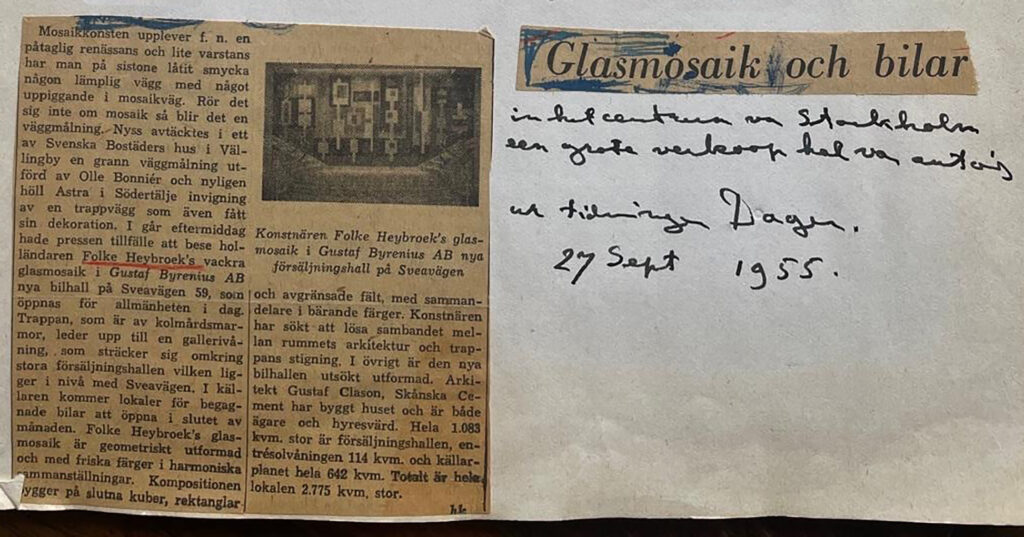 Glasmosaik och bilar
Mosaikkonsten upplever f. n. en
påtaglig renässans och lite varstans
har man på sistone låtit smycka
någon lämplig vägg med något
uppiggande i mosaikväg. Rör det
sig inte om mosaik så blir det en
väggmålning. Nyss avtäcktes i ett
av Svenska Bostäders hus i Väl-
lingby en grann väggmålning ut-
förd av Olle Bonniér och nyligen
höll Astra i Södertälje invigning
av en trappvägg som även fått
sin dekoration. I går eftermiddag
hade pressen tillfälle att bese hol-
ländaren Folke Heybroek's vackra
glasmosaik i Gustaf Byrenius AB
nya bilhall på Sveavägen 59, som
öppnas för allmänheten i dag.
Trappan, som är av kolmårdsmar-
mor, leder upp till en gallerivå-
ning, som sträcker sig omkring
stora försäljningshallen vilken lig-
ger i nivå med Sveavägen. I käl-
laren kommer lokaler för begag-
nade bilar att öppna i slutet av
månaden. Folke Heybroek's glas-
mosaik är geometriskt utformad
och med friska färger i harmoniska
sammanställningar. Kompositionen
bygger på slutna kuber, rektanglar
Konstnären Folke Heybroek's glas-
mosaik i Gustaf Byrenius AB nya
försäljningshall på Sveavägen
och avgränsade fält, med samman-
delare i bärande färger. Konstnären
har sökt att lösa sambandet mel-
lan rummets arkitektur och trap-
pans stigning. I övrigt är den nya
bilhallen utsökt utformad. Arki-
tekt Gustaf Clason, Skånska Ce-
ment har byggt huset och är både
ägare och hyresvärd. Hela 1.083
kvm. stor är försäljningshallen, en-
trésolvåningen 114 kvm. och källar-
planet hela 642 kvm. Totalt är hela
lokalen 2.775 kvm, stor.
hk
in het centrum van Stockholm
een grote verkoop hal van auto's
ur tidningen Dagen.
27 Sept 1955.